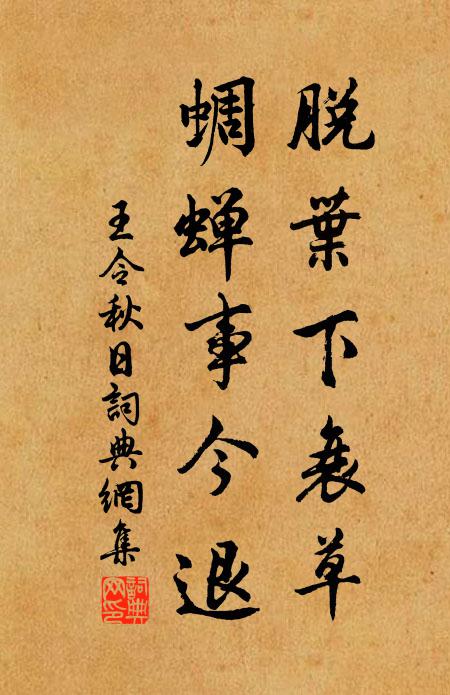 脱葉下衰草
蜩蟬事今退
王令秋日詞典網集
詞典网印